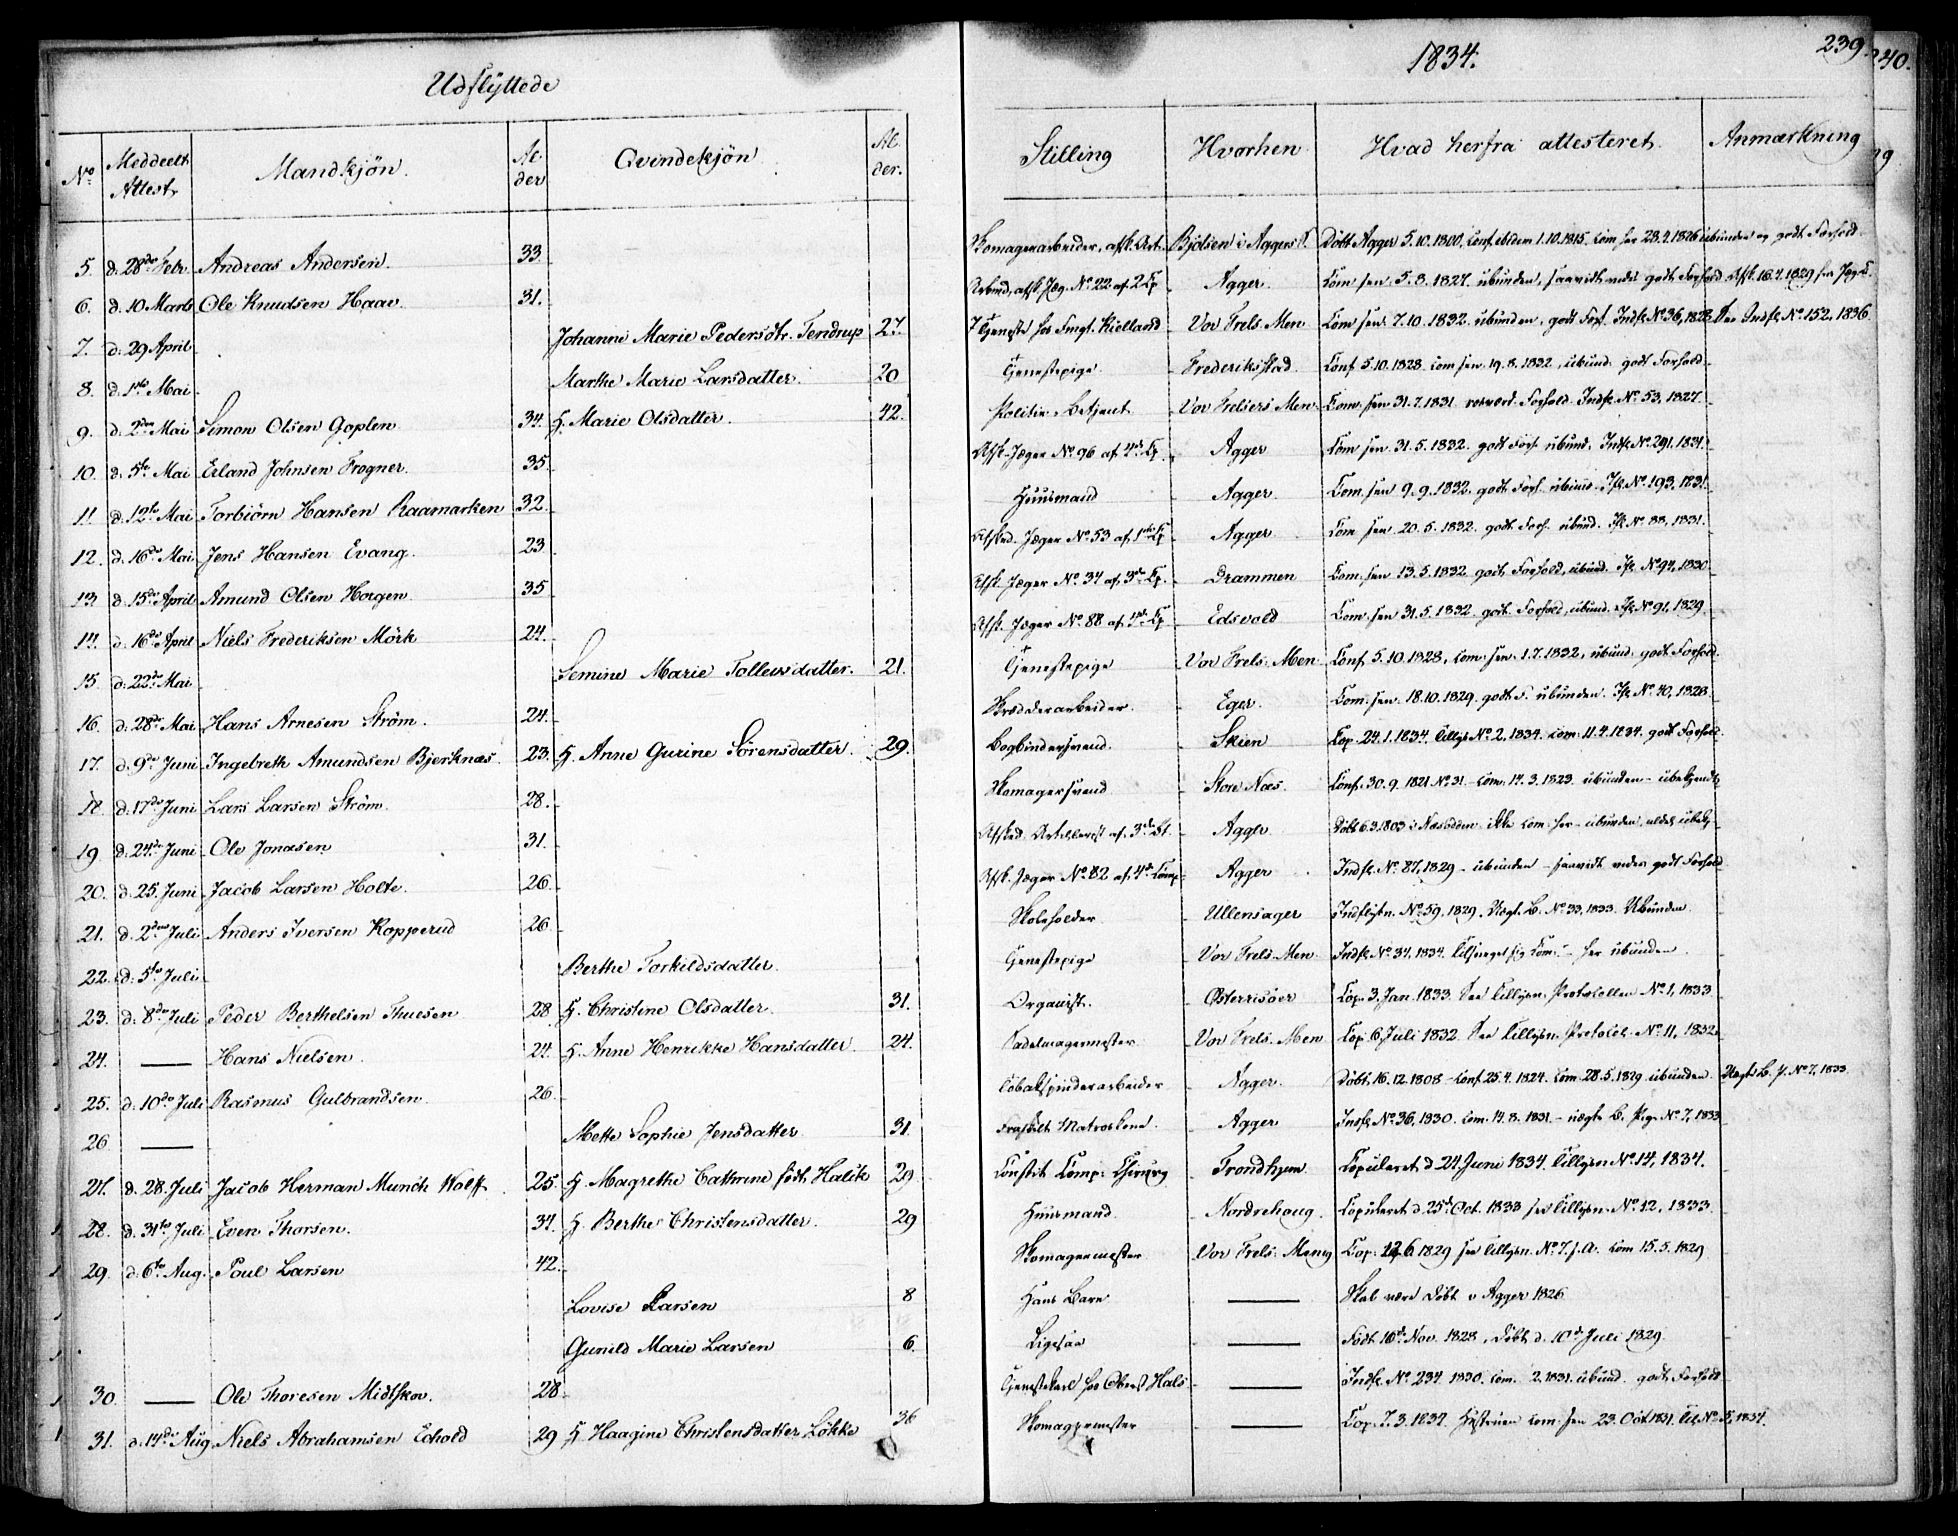 Udflyttede
1834.
239.
240.
No Meddeelt Attest. Mandkjön. Alder Qvindekjön Alder. Stilling Hvorhen Hvad herfra attesteret. Anmærkning
5. d. 28de Febr. Andreas Andersen. 33. Skomagerarbeider, afsk. Art. Bjölsen i Aggers S. Döbt Agger 5.10.1800, Conf. ibidem 1.10.1815. Com. her 28.9.1826 ubunden og godt Forhold.
6. d. 10 Marts Ole Knudsen Haae. 31. Arbmd, afsk. Jæg. No. 22 af 2 Cp. Agger. Com. sen. 5.8.1827. ubunden, saavidt vides godt Forhold Afsk. 16.7.1829 fra Jæg. C.
7. d. 29 April Johanne Marie Pedersdtr. Terdrup 27. Tjeneste hos Kielland Vor Frels. Men. Com. sen. 7.10.1832. ubunden, godt Forh. Indfl. No. 36, 1828. See Indfl. No. 152, 1836.
8. d. 1ste Mai Marthe Marie Larsdatter. 20 Tjenestepige Frederikstad. Conf. 5.10.1828. Com. sen. 19.8.1832, ubund. godt Forhold.
9. d. 2den Mai Simon Olsen Goplen 34. H. Marie Olsdatter. 42. Politie-Betjent Vor Frelsers Men. Com. sen. 31.7.1831. Forhold. Indfl. No. 53, 1827.
10. d. 5te Mai Erland Johnsen Frogner. 35. Afsk. Jæger No. 96 af 4de Cp. Agger Com. sen. 31.5.1832. godt Forh. ubund. Indfl. No. 291, 1831.
11 d. 12te Mai Torbiörn Hansen Raamarken 32. Huusmand Agger. Com. sen. 9.9.1832. godt Forh. ubund. Ifl. No. 193, 1831.
12. d. 16de Mai Jens Hansen Evang. 23. Afsked. Jæger No. 53 af 1ste Cp. Agger. Com. sen. 20.5.1832. godt Forh. ubund. Ifl. No. 88, 1831.
13. d. 15de April Amund Olsen Horgen. 35 Afsk. Jæger No. 34 af 3de Cp. Drammen Com. sen. 13.5.1832 godt Forhold, ubund. Ifl. No. 94, 1830.
14. d. 16de April Niels Frederiksen Mörk 24. Afsk. Jæger No. 88 af 4de Cp. Edsvold Com. sen. 31.5.1832. godt Forhold, ubund. Ifl. No. 91, 1829.
15. d. 22de Mai Semine Marie Tollewsdatter. 21. Tjenestepige Vor Frels. Men. Conf. 5.10.1828, Com. sen. 1.7.1832, ubund. godt Forhold.
16. d. 28de Mai Hans Arnesen Ström. 24. Skrædderarbeider. Eger. Com. sen. 18.10.1829. godt F. ubunden. Ifl. No. 40, 1828.
17. d. 9de Juni Ingebreth Amundsen Bjerknæs. 23. H. Anne Gurine Sörensdatter. 29. Bogbindersvend. Skien Cop. 24.1.1834. Tillys. No. 2, 1834. Com. 11.4.1834. godt Forhold.
18. d. 17de Juni Lars Larsen Ström. 28. Skomagersvend Store Næs. Conf. 30.9.1821. No. 31. Com. 14.3.1823. ubunden - ubekjendt
19 d. 24de Juni Ole Jonasen 31. Afsked. Artillerist af 3de Bt. Agger Döbt 6.3.1803 i Næsodden. ikke Com. her - ubunden,
20. d. 25. Juni Jacob Larsen Holte. 26. Afsk. Jæger No. 82 af 4de Comp. Agger Indfl. No. 87, 1829 - ubunden - saavidt vides godt Forhold
21. d. 2den Juli Anders Iversen Kopperud 26 Skoleholder Ullensager Indflytn. No. 59, 1829. Vægt. B. No. 33, 1833. Ubunden
22. d. 5te Juli Berthe Torkildsdatter. Tjenestepige Vor Frels. Men. Indfl. No. 34, 1834. her ubunden
23. d. 8de Juli Peder Berthelsen Thuesen 28 H. Christine Olsdatter. 31. Organist. Österrisöer Cop. 3 Jan. 1833. See Tillysn. Protocollen No. 1, 1833
24. — Hans Nielsen. 24. H. Anne Henrikke Hansdatter. 24. Sadelmagermester Vor Frels. Men Cop. 6 Juli 1832. See Tillysn. Protocol. No. 11, 1832.
25. d. 10de Juli Rasmus Gulbrandsen. 26. Tobakspinderarbeider Agger. Döbt. 16.12.1808 - Conf. 25.4.1824. Com. 28.5.1829 ubunden. Vægt. B. P. No. 7, 1833
26 — Mette Sophie Jensdatter 31. Fraskilt Matroskone. Agger Indfl. No. 36, 1830. Com. 14.8.1831. - vægt. B. No. 7, 1833
27. d. 28. Juli Jacob Herman Munch Wolff. 25. H. Magrethe Cathrine födt Halck 29 Constit. Comp. Chirurg Trondhjem Copuleret d. 24 Juni 1834. Tillysn. No. 14, 1834.
28. d. 31te Juli Even Thorsen. 34. H. Berthe Christensdatter. 29 Huusmand. Nordrehoug. Copuleret d. 25de Oct. 1833 see Tillysn. No. 12, 1833.
29. d. 6te Aug. Poul Larsen 42. Skomagermester Vor Frels. Meng Cop. 12.6 1829 see Tillysn. No. 7. f. A. Com. 15.5.1829
Lovise Larsen 8 Hans Barn — Skal være Döbt i Agger 1826
Gunild Marie Larsen 6. Ligesaa — Födt 10de Nov. 1828, Döbt d. 10de Juli 1829.
30. — Ole Thoresen Midtskov. 28. Tjenestekarl hos Oberst Hals — Indfl. No. 234. 1830. Com. 2.1831. ubund. godt Forhold
31. d. 14de Aug. Niels Abrahamsen Echold 29 H. Haagine Christensdatter Lökke 36 Skomagermester — Cop. 7.3.1834. Hustruen Com. sen. 23. Oct. 1831. Till. No. 5, 1834.